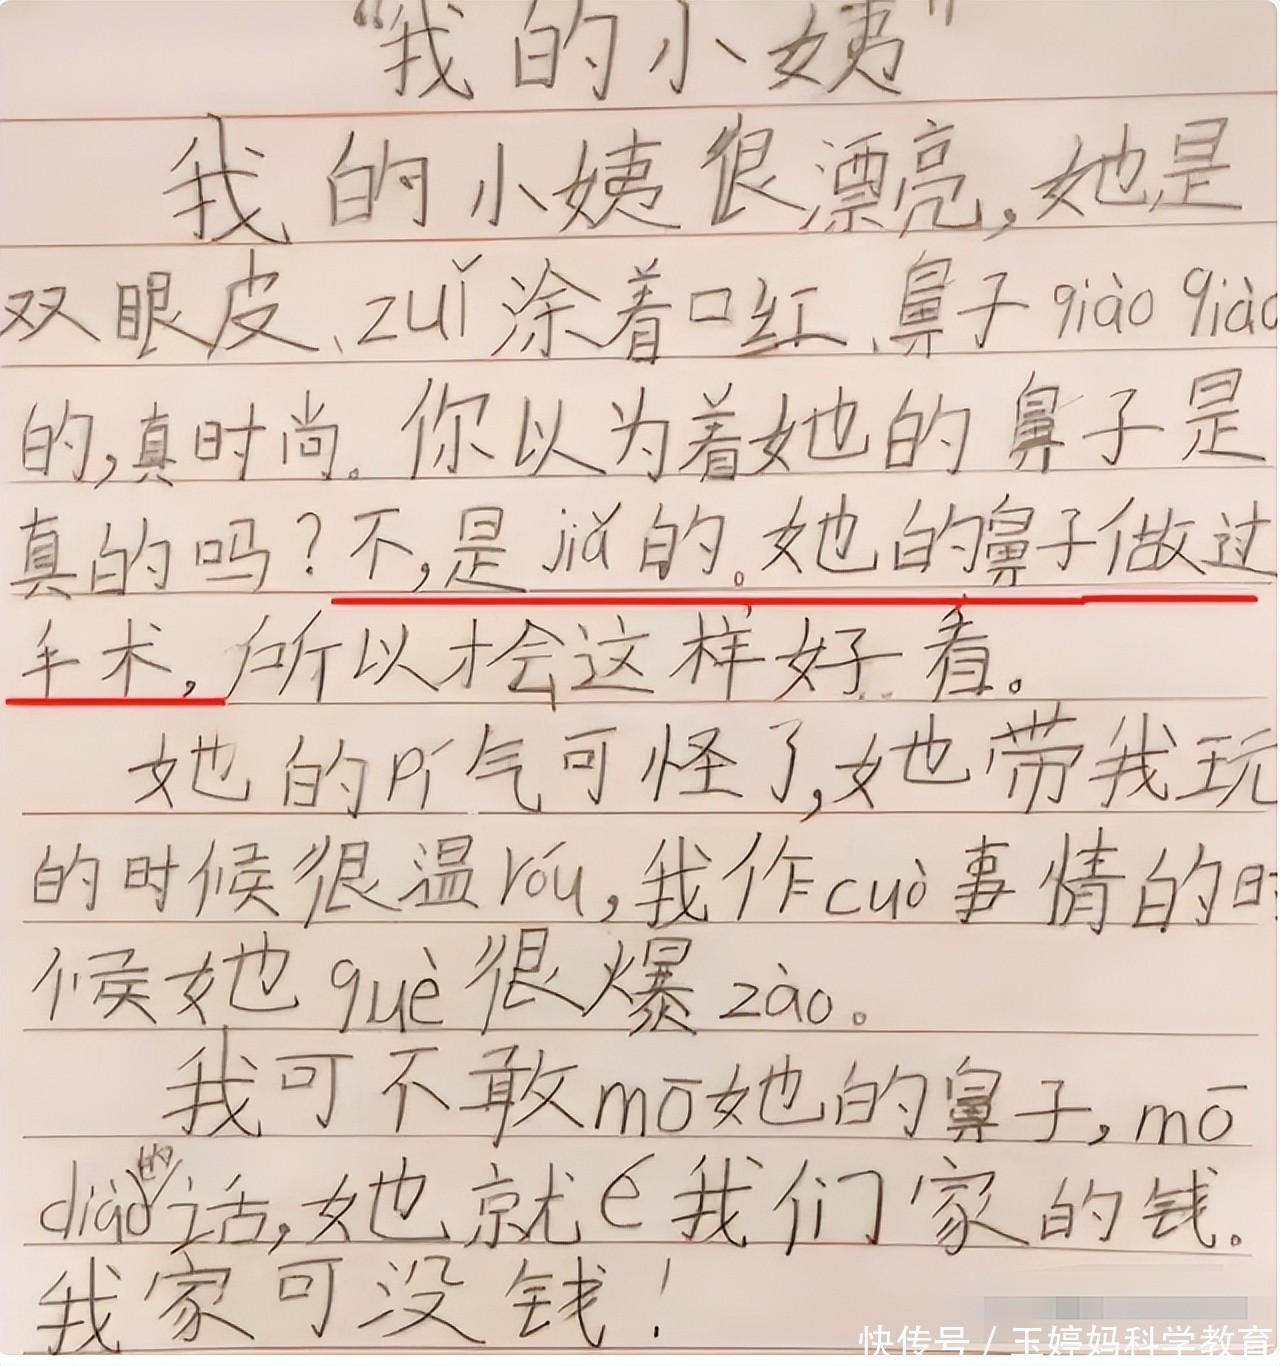 “我的小姨”
我的小姨很漂亮,她是
双眼皮、zuǐ涂着口红、鼻子qiào qiào
的,真时尚。你以为着她的鼻子是
真的吗?不,是jiǎ的。她的鼻子做过
手术,所以才会这样好看。
她的pí气可怪了,她带我玩
的时候很温róu,我作cuò事情的时
候她què很爆zào。
我可不敢mō她的鼻子,mō
diào的话,她就é我们家的钱。
我家可没钱!
快传号 / 玉婷妈科学教育